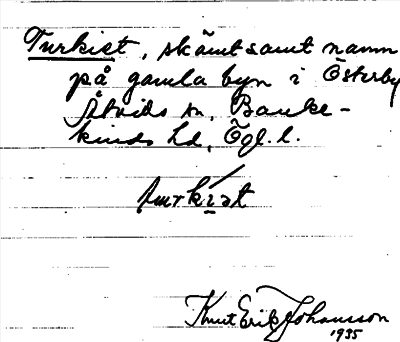 Turkiet, skämtsamt namn
på gamla byn i Österby
Åtvids sn, Banke-
kinds hd, Ögl. l.
turkiət
Knut Erik Johansson
1935